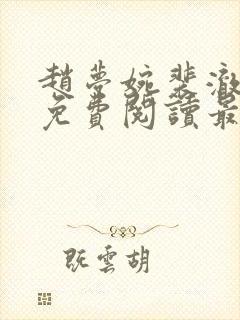 趙夢婉裴澈
免費閱讀最
既雲胡